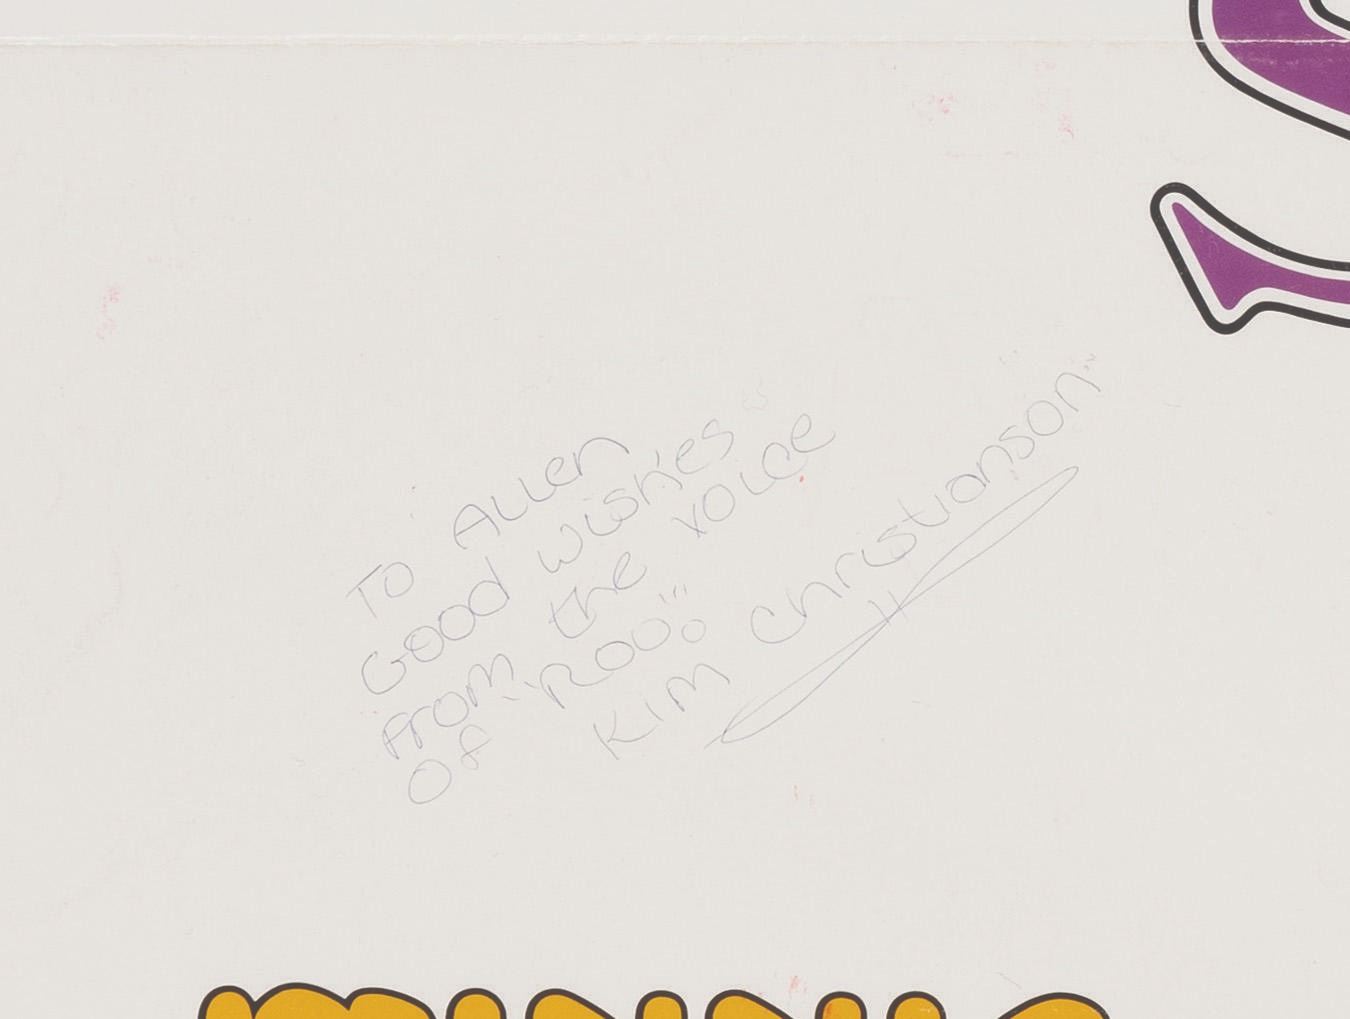 To Allen
Good wishes
from the voice
of "Roo"!!
Kim Christianson